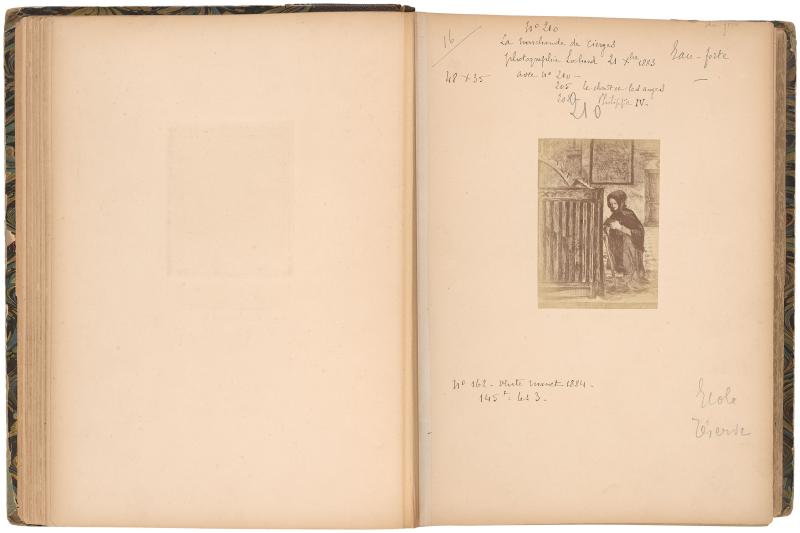 16
No 210
La marchande de cierges
photographie Lochard 21 Xbre 1883
Eau-forte
48 x 35
avec No 210 -
205 le christ et les anges
Philippe IV -
210
No 162 - Vente Manet - 1884 -
145 f = les 3 -
Ecole